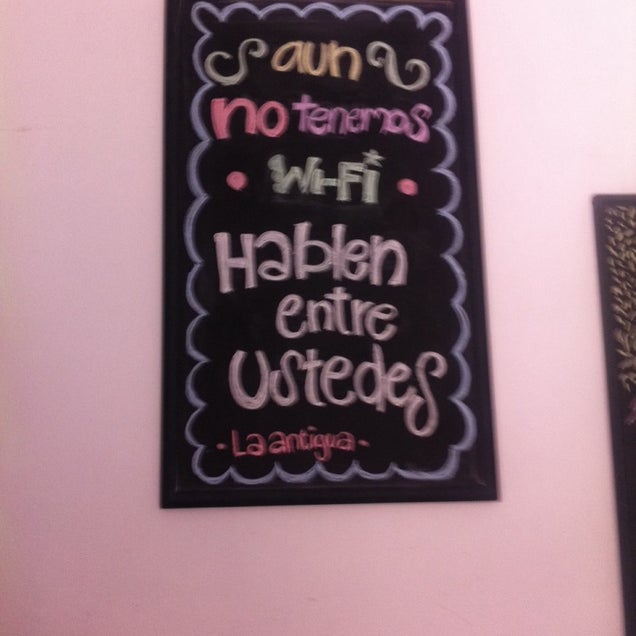 aun
no tenemos
Wi-Fi
Hablen
entre
Ustedes
- La antigua -